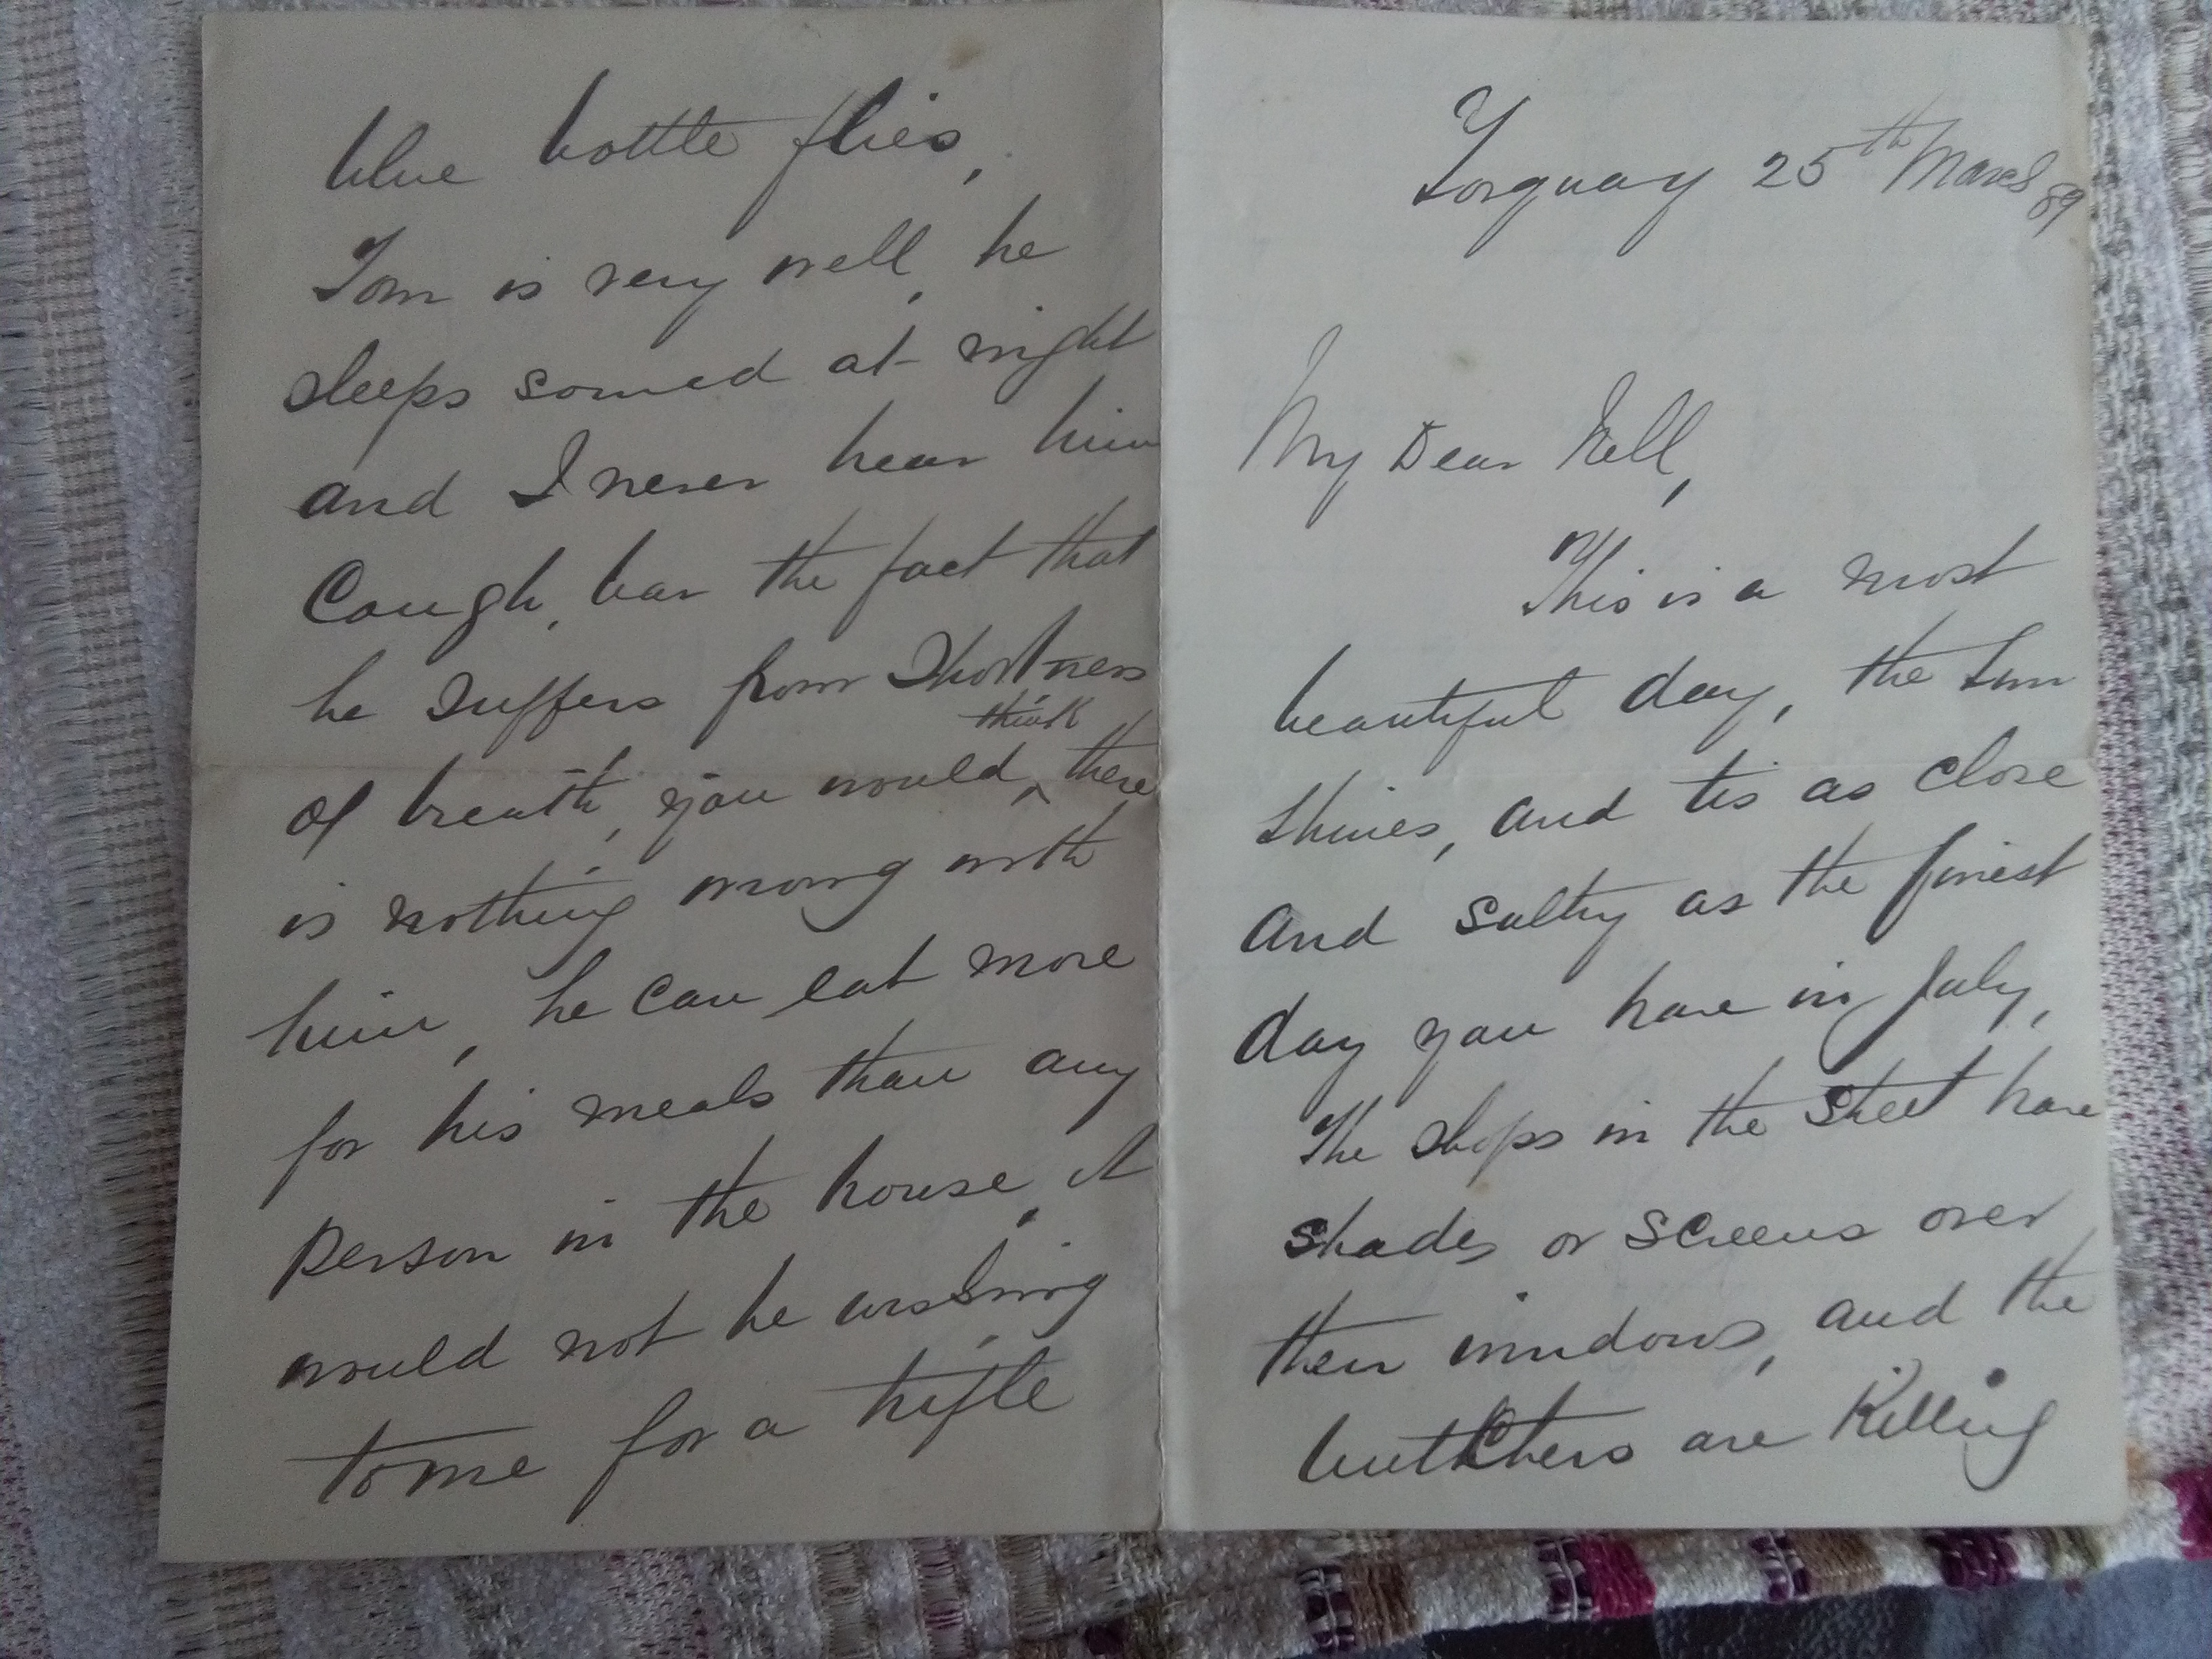 Torquay 25th March 89
My Dear Nell,
This is a most
beautiful day, the sun
shines, and tis as close
and sultry as the finest
day you have in July,
The shops in the street have
shades or screens over
their windows, and the
butchers are Killing
blue bottle flies,
Tom is very well, he
sleeps sound at night
and I never hear him
Cough, bar the fact that
he suffers from Shortness
of breath, you would think there
is nothing wrong with
him, he can eat more
for his meals than any
person in the house, it
would not be wishing
to me for a trifle